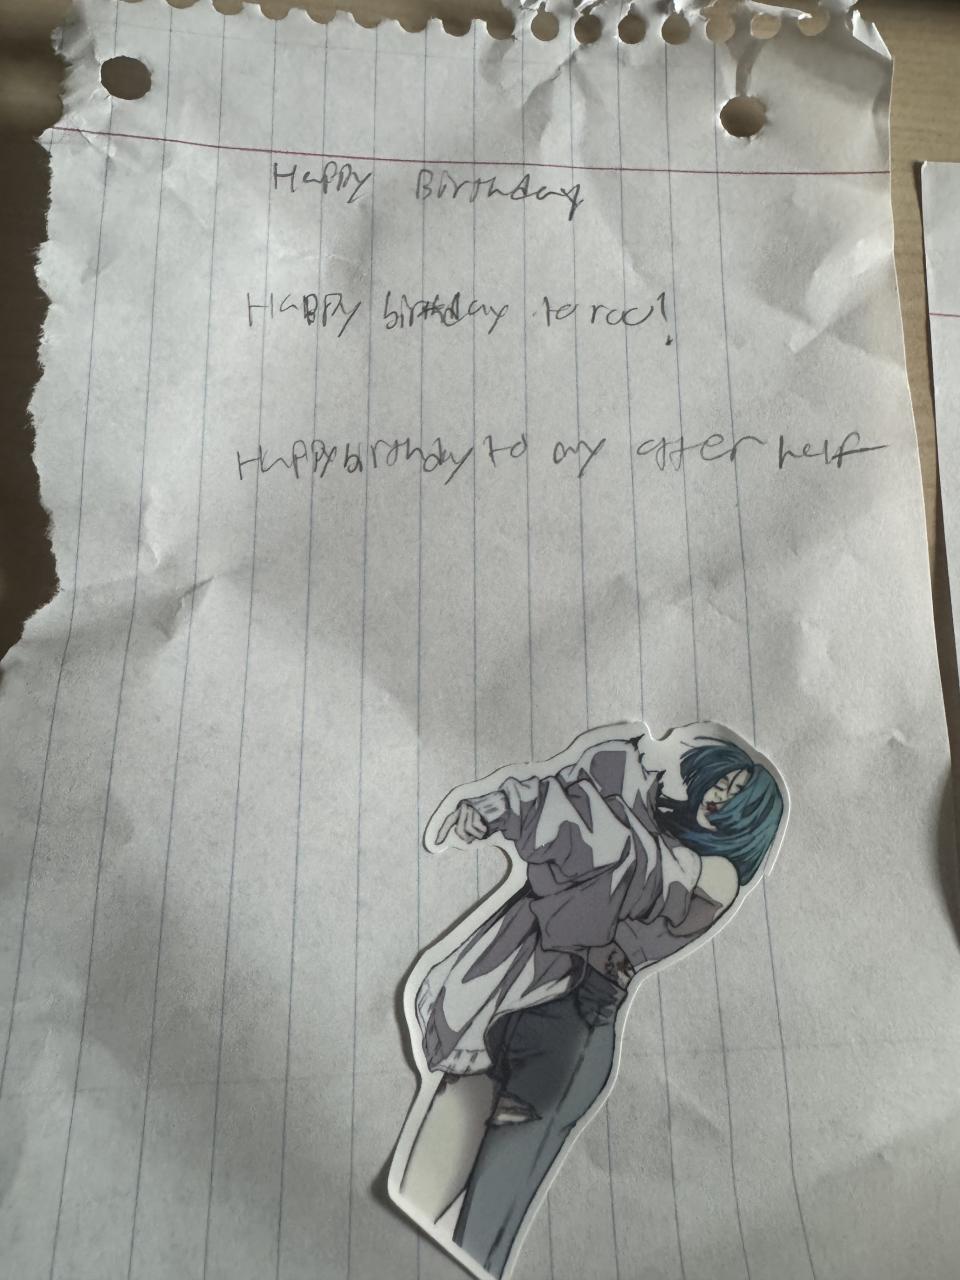 Happy Birthday
Happy birthday to roo!
Happy birthday to my other half